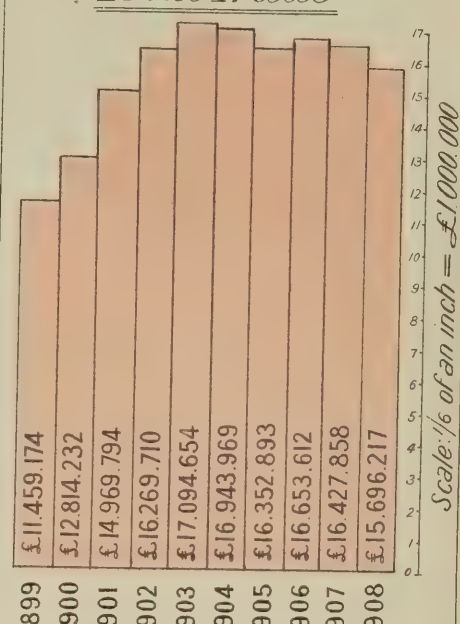 £11.459.174
£12.814.232
£14.969.794
£16.269.710
£17.094.654
£16.943.969
£16.352.893
£16.653.612
£16.427.858
£15.696.217
899
900
901
902
903
904
905
906
907
908
17
16
15
14
13
12
11
10
9
8
7
6
5
4
3
2
1
0
Scale: 1/6 of an inch = £1.000.000